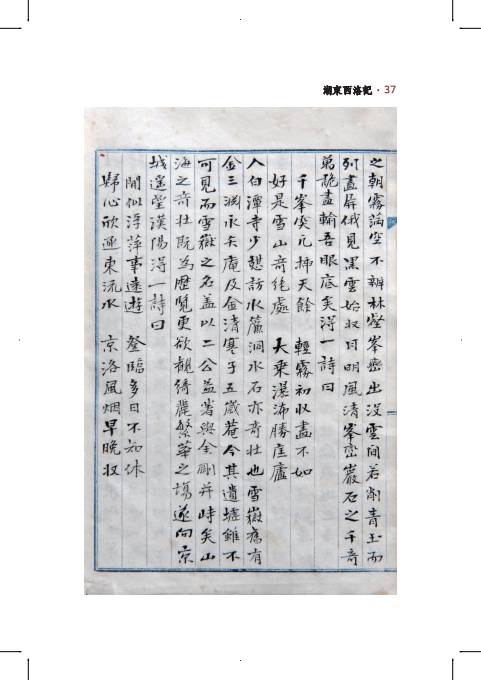 湖東西洛記 · 37
之朝霧滿空不辨林壑峯巒出沒雲間若削青玉而
列畵屛俄見黑雲始收日明風淸峯巒巖石之千奇
萬詭盡輸吾眼底矣得一詩曰
千峯突兀揷天餘 輕霧初收畵不如
好是雪山奇絶處 大乘瀑沛勝匡廬
入白潭寺少憩訪水簾洞水石亦奇壯也雪嶽舊有
金三淵永矢庵及金淸寒子五歲菴今其遺墟雖不
可見而雪嶽之名盖以二公益著與金剛幷峙矣山
海之奇壯旣爲歷覽更欲觀綺麗繁華之場遂向京
城遙望漢陽得一詩曰
閒似浮萍事遠遊 登臨多日不知休
歸心欣逐東流水 京洛風烟早晩收